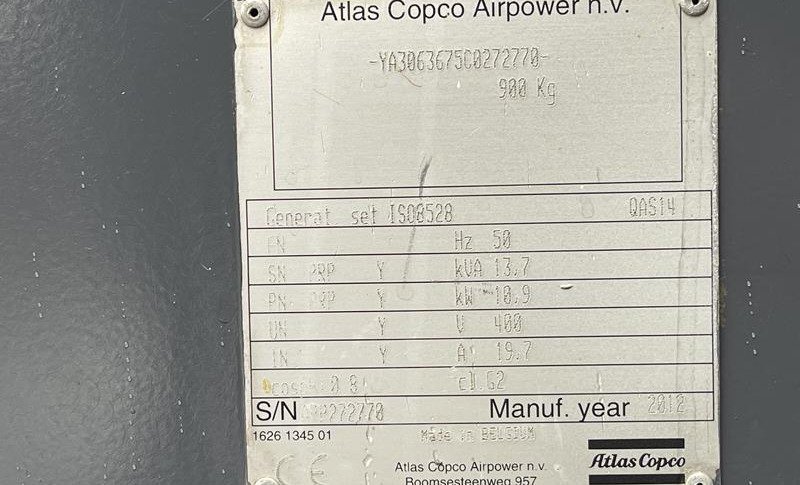 Atlas Copco Airpower n.v.
-YA3063675C0272770-
900 Kg
Generat. set ISO8528 QAS14
FN Hz 50
SN PRP Y kVA 13,7
PN PRP Y kW 10,9
UN Y V 400
IN Y A 19,7
0 8 cl.G2
S/N 272770 Manuf. year 2012
1626 1345 01 Made in BELGIUM
CE
Atlas Copco
Atlas Copco Airpower n.v.
Boomsesteenweg 957